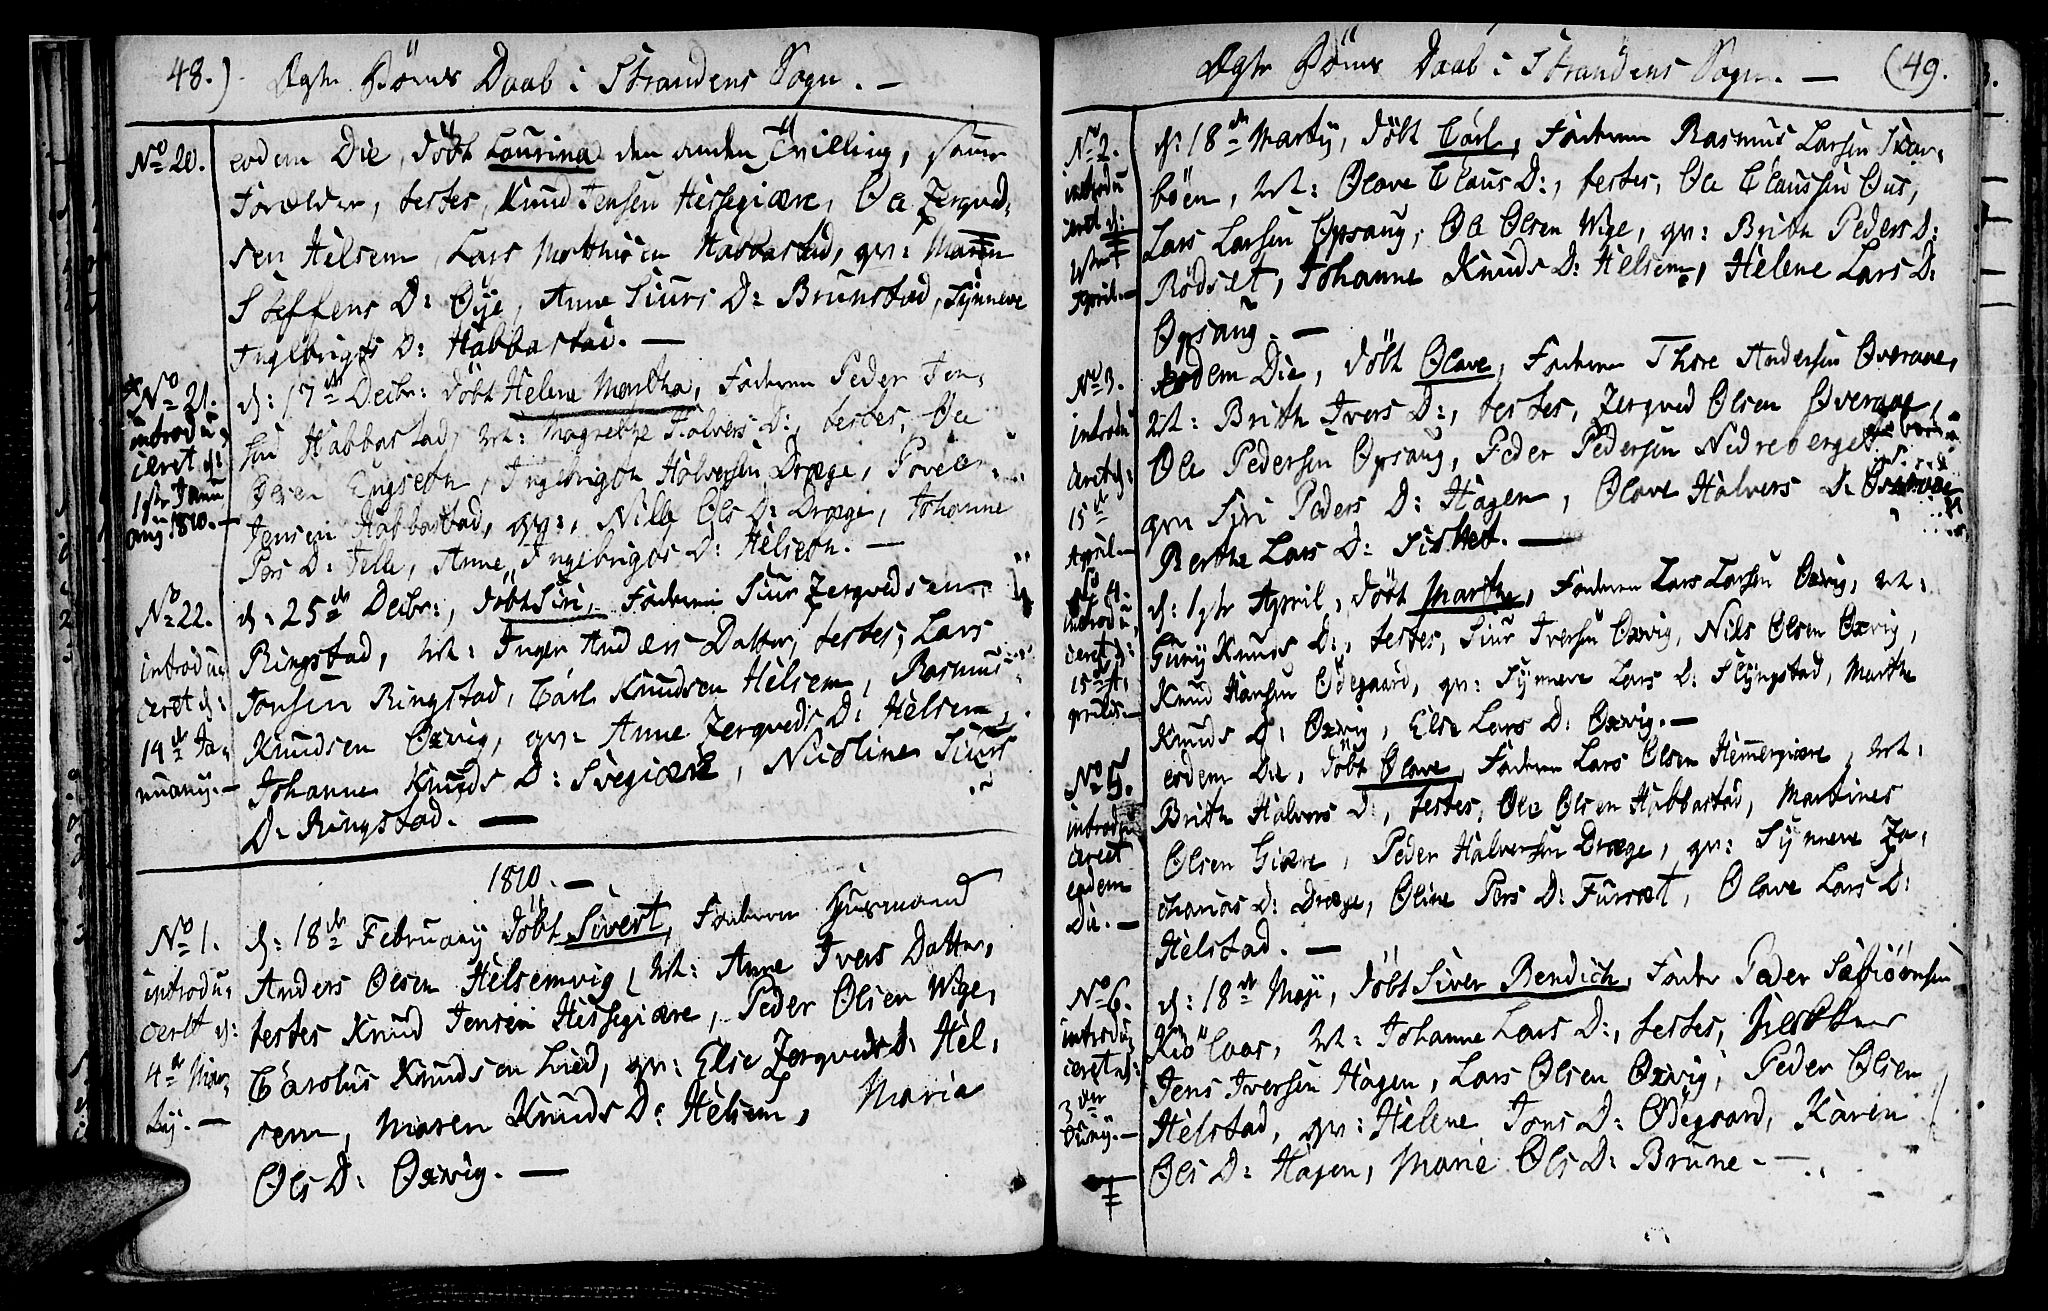 48.) Ægte Börns Daab i Strandens Sogn. —
No 20.
eodem Die, döbt Laurina den anden Tvilling, samme
Forældre, testes, Knud Jensen Hessegiære, Ole Zergved,
sen Helsem, Lars Matthisen Habbastad, qv: Maren
Steffens D: Øye, Anne Siurs D: Brunstad, Synneve
Ingebrigts D: Habbastad. —
No 21.
introdu,
ceret d:
1ste Janu
arij 1810. —
d: 17de Decbr: döbt Helene Martha, Faderen Peder Jen,
sen Habbastad, Mt: Magrethe Halvers D:, testes, Ole
Olsen Engseth, Ingebrigth Halversen Dræge,
Jensen Habbastad, qv:, Nille Ols D: Dræge, Johanne
Pers D: Velle, Anne Ingebrigts D: Helseth. —
No 22.
introdu,
ceret d:
14de Ja,
nuarij. —
d: 25de Decbr:, döbt Siri, Faderen Siur Zergvedsen
Ringstad, Mt: Inger Anders Datter, testes, Lars
Jonsen Ringstad, Carl Knudsen Helsem, Rasmus
Knudsen Oxvig, qv: Anne Zergveds D: Helsem,
Johanne Knuds D: Svegiære, Nicoline Siurs
D: Ringstad. —
1810. —
No 1.
introdu,
ceret d:
4de Mar,
tij. —
d: 18de Februarij döbt Sivert, Faderen Huusmand
Anders Olsen Helsemvig, Mt: Anne Ivers Datter,
testes Knud Jensen Hessegiære, Peder Olsen Wige,
Carolus Knudsen Lied, qv: Else Zergveds D: Hel,
sem, Maren Knuds D: Helsem, Maria
Ols D: Oxvig. —
Ægte Börns Daab i Strandens Sogn. — (49.
No 2.
introdu
ceret d:
April. —
d: 18de Martij, döbt Carl, Faderen Rasmus Larsen Skar,
böen, Mt: Olave Claus D:, testes, Ole Claussen Hus,
Lars Larsen Opsaug, Ole Olsen Wige, qv: Brith Peders D:
Rödset, Johanne Knuds D: Helsem, Helene Lars D:
Opsaug. —
No 3.
introdu
ceret d:
15de
April. —
eodem Die, döbt Olave, Faderen Thore Andersen Overaae,
Mt: Brith Ivers D:, testes, Zergved Olsen Overaae,
Ole Pedersen Opsaug, Peder Pedersen Nedreberget
qv: Siri Peders D: Hagen, Olave Halvers D: Overaae
Berthe Lars D: Sisket. —
No 4.
introdu,
ceret d:
15de A,
prilis. —
d: 1ste April, döbt Marthe, Faderen Lars Larsen Oxvig, Mt:
Gurij Knuds D:, testes, Siur Iversen Oxvig, Nils Olsen Oxvig,
Knud Hansen Ödegaard, qv: Synneve Lars D: Slyngstad, Marthe
Knuds D: Oxvig, Else Lars D: Oxvig. —
No 5.
introdu
ceret
eodem
Die. —
eodem Die, döbt Olave, Faderen Lars Olsen Hemmergiære, Mt:
Brith Halvers D:, testes, Ole Olsen Habbastad, Martines
Olsen Giære, Peder Halversen Dræge, qv: Synneve Za,
charias D: Dræge, Oline Pers D: Furset, Olave Lars D:
Helstad. —
No 6.
introdu,
ceret d:
3die
Junij. —
d: 18de Maji, döbt Siver Bendich, Fader Peder Sæbiörnsen
Kiölaas, Mt: Johanne Lars D:, testes,
Jens Iversen Hagen, Lars Olsen Oxvig, Peder Olsen
Helstad, qv: Helene Jons D: Ödegaard, Karen
Ols D: Hagen, Marie Ols D: Brune. —